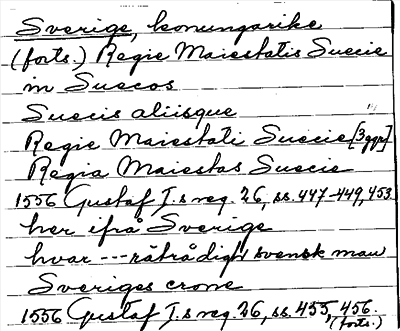 Sverige, konungarike
(forts.) Regie Maiestatis Suecie
in Suecos
Suecis aliisque
Regie Maiestati Suecie [3 ggr]
Regia Maiestas Suecie
1556 Gustaf I.s reg. 26, ss. 447-449, 453
her ifrå Sverige
hvar --- rätrådigh svensk man
Sveriges crone
1556 Gustaf I.s reg. 26, ss. 455, 456.
(forts.)